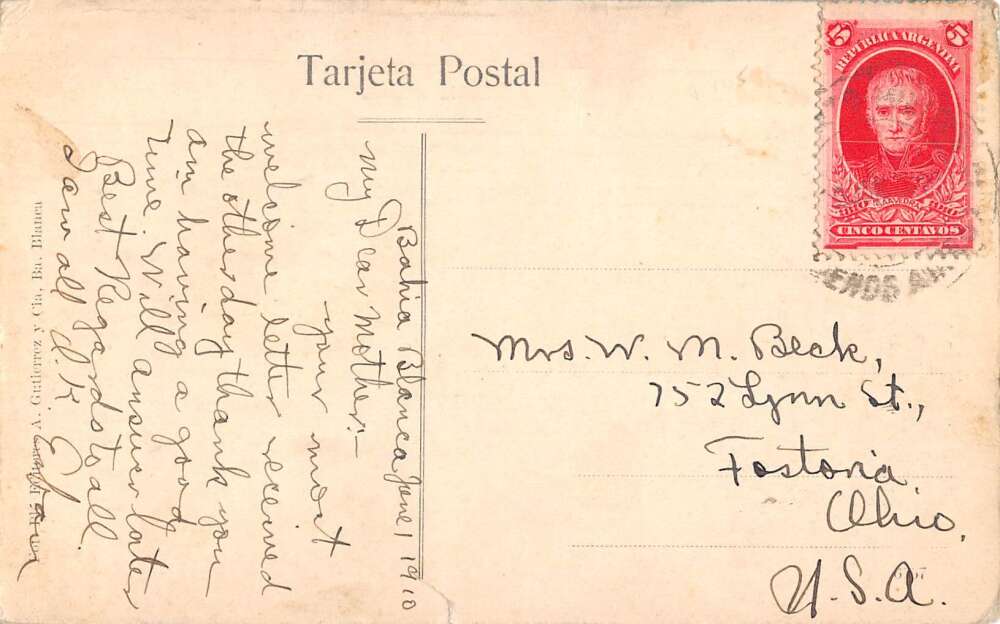 Tarjeta Postal
Bahia Blanca June 1 1910
My Dear Mother:-
your most
welcome letter received
the other day thank you
am having a good
time. Will answer later
Best Regards to all.
I am all O.K.
A. Gutierrez y Cia, Ba. Blanca
5 5
REPUBLICA ARGENTINA
1810 SAAVEDRA 1910
CINCO CENTAVOS
ENOS AI
Mrs. W. M. Beck,
752 Lynn St.,
Fostoria,
Ohio,
U.S.A.